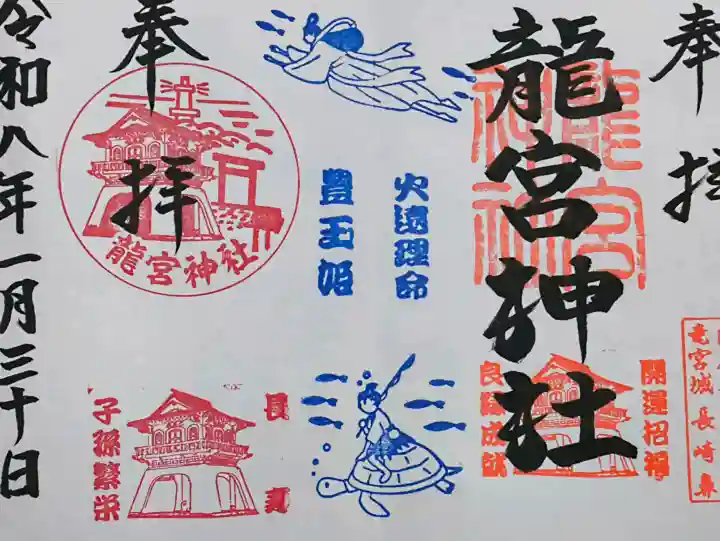 奉拝
龍宮神社
龍宮神社
開運招福
良縁成就
竜宮城長崎鼻
火遠理命
豊玉姫
奉拝
龍宮神社
子孫繁栄
令和八年一月三十日